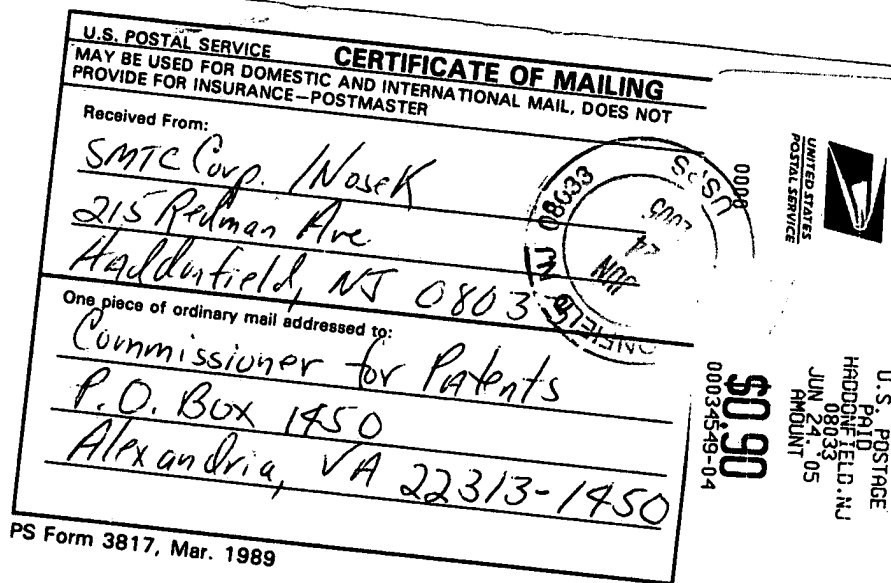 U.S. POSTAL SERVICE CERTIFICATE OF MAILING
MAY BE USED FOR DOMESTIC AND INTERNATIONAL MAIL, DOES NOT
PROVIDE FOR INSURANCE—POSTMASTER
Received From:
SMTC Corp. /Nosek
215 Redman Ave
Haddonfield, NJ 0803
One piece of ordinary mail addressed to:
Commissioner for Patents
P.O. Box 1450
Alexandria, VA 22313-1450
PS Form 3817, Mar. 1989
NJ 08033
USPS
JUN 24 2005
ONFIELD
0000
UNITED STATES
POSTAL SERVICE
U.S. POSTAGE
PAID
HADDONFIELD.NJ
08033
JUN 24.'05
AMOUNT
$0.90
00034549-04